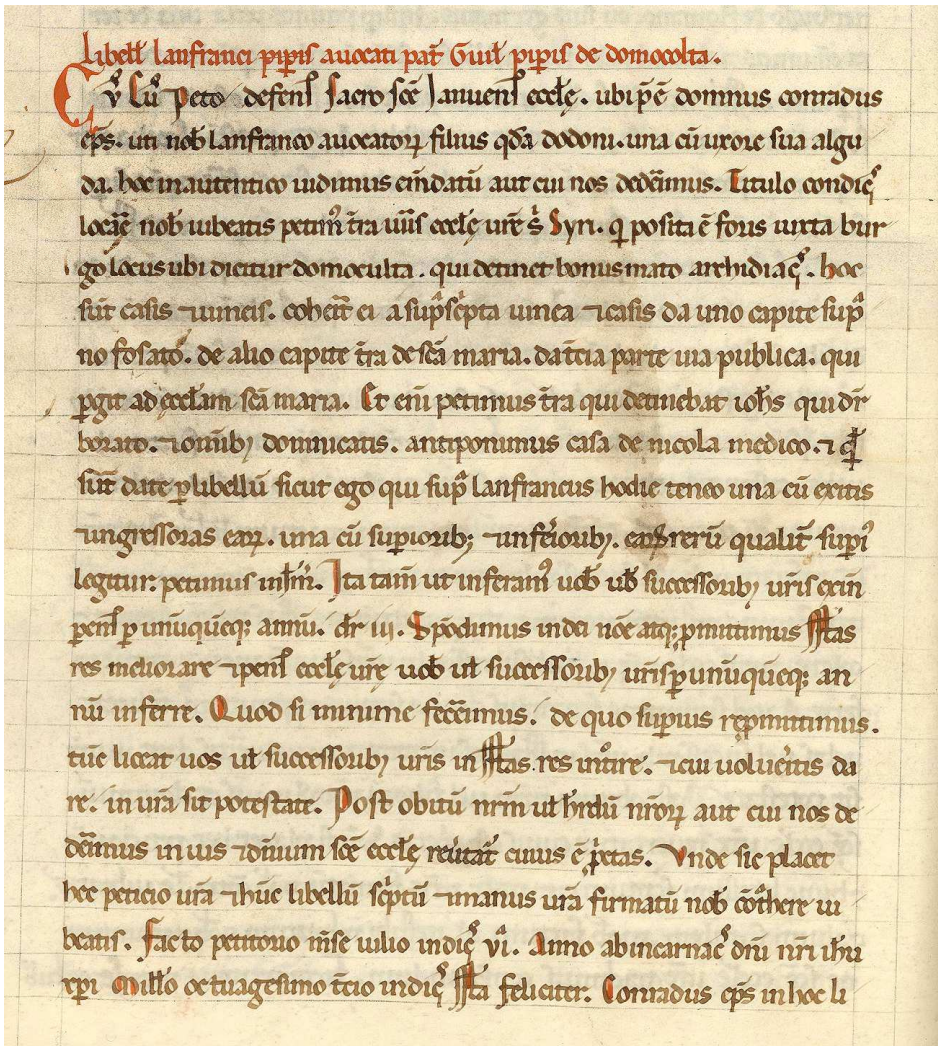 Libell' lanfranci pip̱is auocati pat̄ Guil' pip̱is de domocolta.
Cū Cū Peto defens' sacro s̄ce Januens' eccl'ę. ubi p̄ē domnus conradus
ep̄s. uti nob' lanfranco auocatorꝝ filius q̄da dodoni. una cū uxore sua algu
da. hoc in autentico uidimus em̄datū aut cui nos dedēimus. Titulo condic̄
locac̄ nob' iubeatis petim᷒ t̄ra uiīs eccl'ę ur̄ę s̄ Syri. q posita ē foris iuxta bur
go locus ubi dicitur domoculta. qui detinet bonus mato archidiac̄. hoc
sūt casis ⁊ uineis. coheret̄ ei a sup̄sc̄pta uinea ⁊ casis da uno capite sup̄
no fosato. de alio capite t̄ra de sc̄a maria. da t̄cia parte uia publica. qui
ꝑgit ad eccl'am sc̄a maria. Et eni petimus t̄ra qui detinebat ioh̄s qui dr̄
borato. ⁊ omnibꝫ domnicatis. antiponimus casa de nicola medico. ⁊ q̄
sūt date ꝑ libellū sicut ego qui sup̄ lanfrancus hodie teneo una cū exitis
⁊ ingressoras earꝝ. una cū supioribꝫ ⁊ inferioribꝫ. earꝝ rerū qualit̄ supi
legitur. petimus insim̄. Ita tam̄ ut inferam᷒ uob' ul' successoribꝫ ur̄is exin
ꝑ pens' ꝑ unūquēqꝫ annū. dr̄ iii. Spōdimus in dei nōe atqꝫ ꝓmittimus ss̄tas
res meliorare ⁊ pens' eccl'ę ur̄ę uob' ul' successoribꝫ ur̄is ꝑ unūquēqꝫ an
nū inferre. Quod si minime fecēimus. de quo superius reꝓmittimus.
tūc liceat uos ul' successoribꝫ ur̄is in ss̄tas res introire. ⁊ cui uolueritis da
re. in ur̄a sit potestate. Post obitū nr̄m ul' h̄redū nr̄orꝝ aut cui nos de
dēimus in ius ⁊ dn̄ium sc̄e eccl'ę reūtat̄ cuius ē ꝓp̄etas. Vnde sic placet
hec peticio ur̄a ⁊ hūc libellū sc̄ptū ⁊ manus ur̄a firmatū nob' cōt̄here iu
beatis. Facto petitorio m̄se iulio indic̄ vi. Anno ab incarnac̄ dn̄i nr̄i ih̄u
xp̄i Mill'o octuagesimo t̄cio indic̄ ss̄ta feliciter. Conradus ep̄s in hoc li